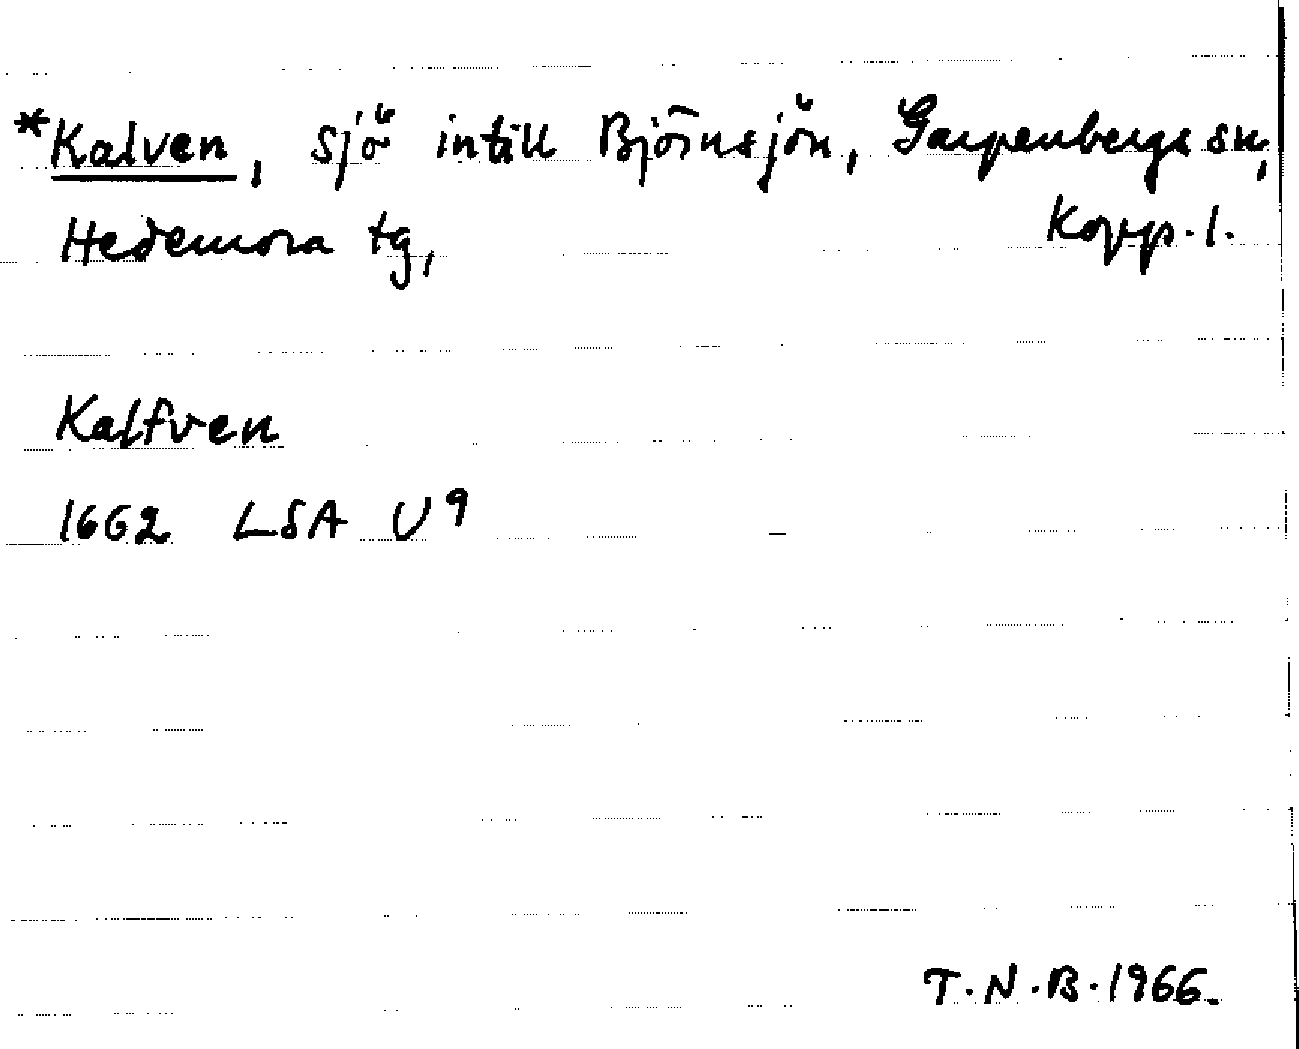 *Kalven, sjö intill Björnsjön, Garpenbergs sn,
Hedemora tg, Kopp. l.
Kalfven
1662 LSA U9
T.N.B. 1966.